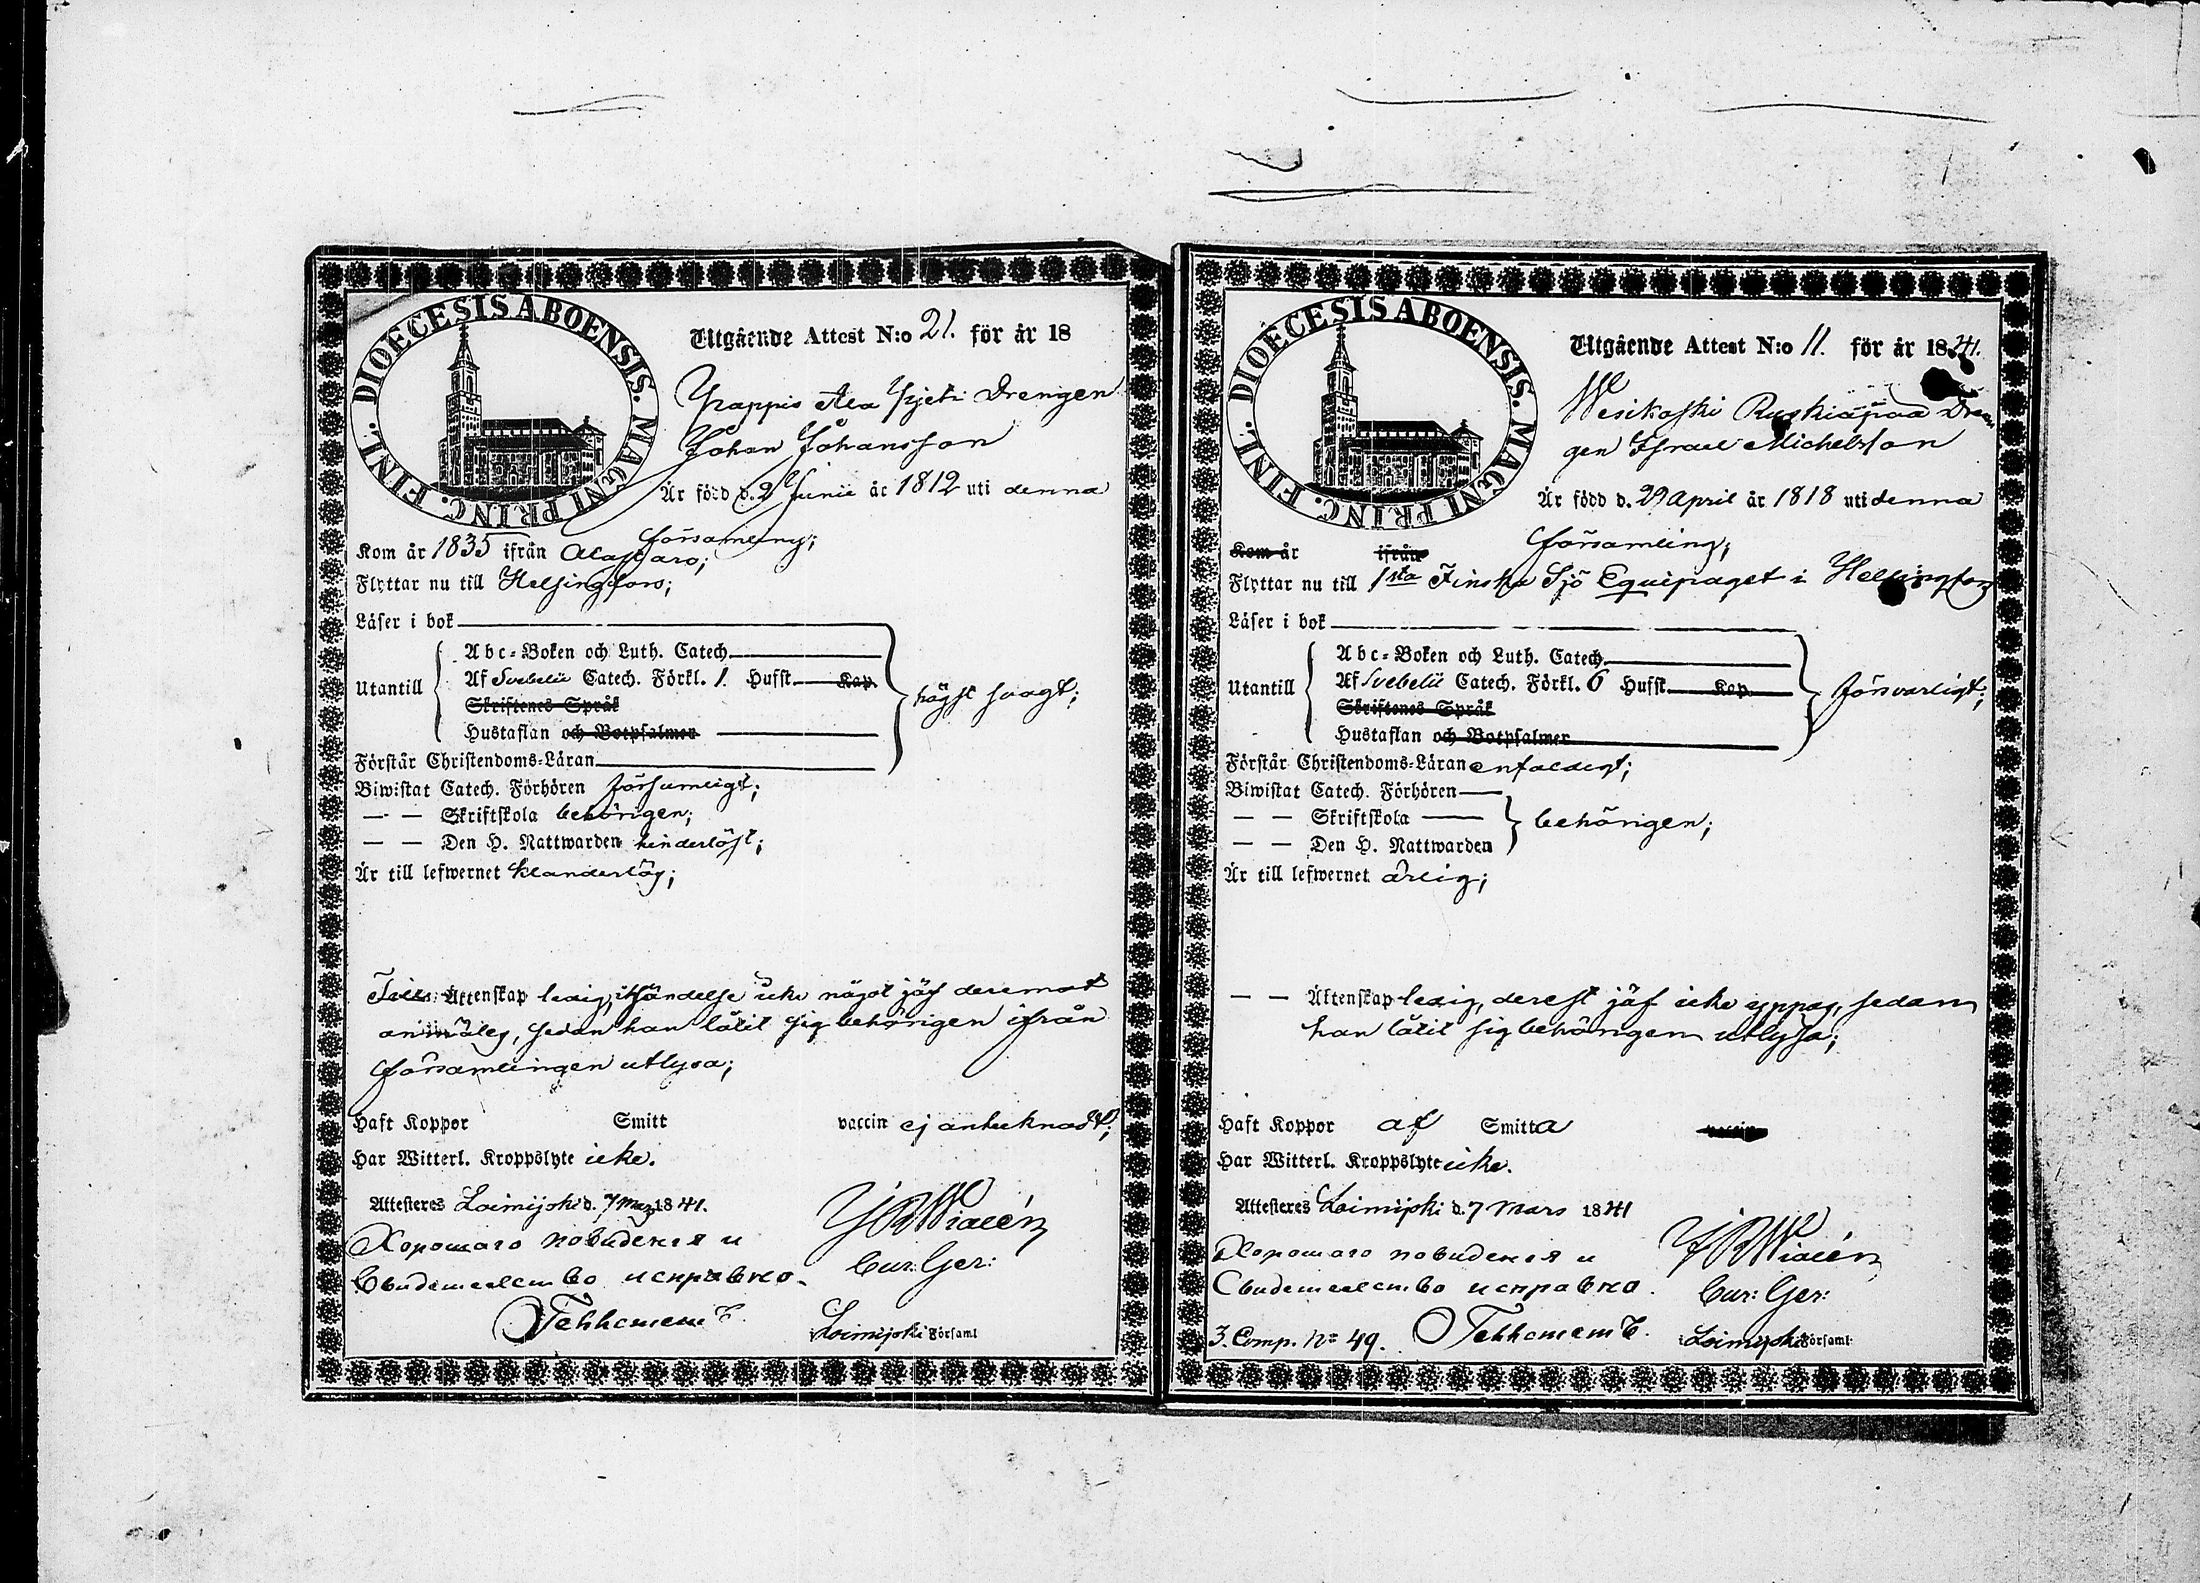 DIOECESIS ABOENSIS. MAGNI PRINC. FINL.
Utgående Attest N:o 21. för år 18
Ala Drengen
Johan Johansson
Är född d. 2 Junii år 1812 uti denna
församling;
Kom år 1835 ifrån Alastaro;
Flyttar nu till Helsingfors;
Läser i bok
Utantill
Abc-Boken och Luth. Catech.
Af Svebelii Catech. Förkl. 1. Hufst. Kap.
Skriftenes Språk
Hustaflan och Botpsalmer
högst svagt;
Förstår Christendoms-Läran
Biwistat Catech. Förhören försumligt;
— — Skriftskola behörigen;
— — Den H. Nattwarden hinderlöst;
Är till lefwernet klanderlös;
Till Äktenskap ledig, ithändelse icke något jäf deremot
anmäles, sedan han låtit sig behörigen ifrån
församlingen utlysa;
Haft Koppor Smitt vaccin ej anteknadt;
Har Witterl. Kroppslyte icke.
Attesteres Loimijoki d. 7 Mars 1841.
Хорошаго поведенія и
Свидетельство исправно.
Cur: Ger:
Loimijoki Församl
DIOECESIS ABOENSIS. MAGNI PRINC. FINL.
Utgående Attest N:o 11. för år 1841.
Wesikoski Dren
gen Israel Michelsson
Är född d. 29 April år 1818 uti denna
församling;
Kom år ifrån
Flyttar nu till 1sta Finska Sjö Equipaget i Helsingfors
Läser i bok
Utantill
Abc-Boken och Luth. Catech.
Af Svebelii Catech. Förkl. 6 Hufst. Kap.
Skriftenes Språk
Hustaflan och Botpsalmer
försvarligt;
Förstår Christendoms-Läran enfaldigt;
Biwistat Catech. Förhören
— — Skriftskola
— — Den H. Nattwarden
behörigen;
Är till lefwernet ärlig;
— — Äktenskap ledig, derest jäf icke yppas, sedan
han låtit sig behörigen utlysa;
Haft Koppor af Smitta vaccin
Har Witterl. Kroppslyte icke.
Attesteres Loimijoki d. 7 Mars 1841
Хорошаго поведенія и
Свидетельство исправно.
Cur: Ger:
3. Comp. No 49.
Loimijoki Församl.